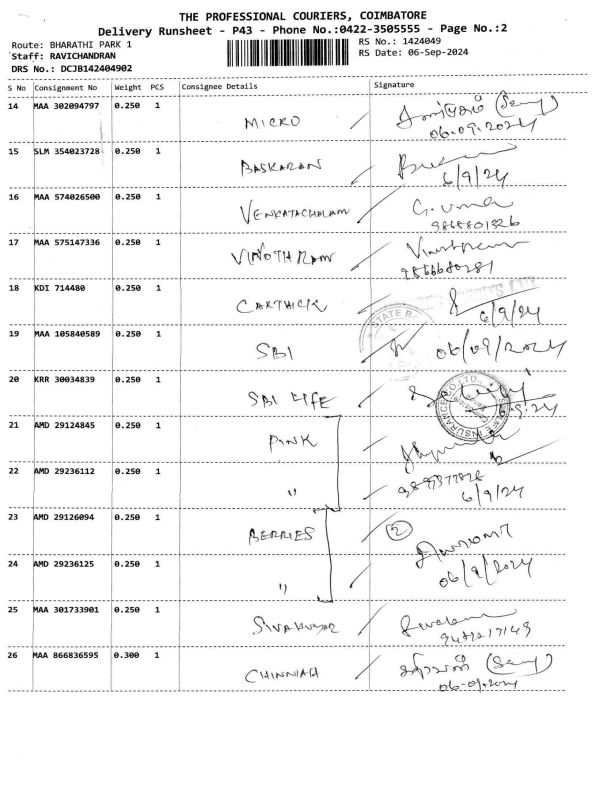 THE PROFESSIONAL COURIERS, COIMBATORE
Delivery Runsheet - P43 - Phone No.:0422-3505555 - Page No.:2
Route: BHARATHI PARK 1
RS No.: 1424049
Staff: RAVICHANDRAN
RS Date: 06-Sep-2024
DRS No.: DCJB142404902
S No Consignment No Weight PCS Consignee Details Signature
14 MAA 302094797 0.250 1 MICRO
06.09.2024
15 SLM 354023728 0.250 1 BASKARAN
6/9/24
16 MAA 574026500 0.250 1 VENKATACHALAM G. Uma
17 MAA 575147336 0.250 1 VINOTH RAM
18 KDI 714480 0.250 1 CARTHICK
6/9/24
STATE B
19 MAA 105840589 0.250 1 SBI 06/09/2024
20 KRR 30034839 0.250 1 SBI LIFE
21 AMD 29124845 0.250 1 PINK
22 AMD 29236112 0.250 1 "
6/9/24
23 AMD 29126094 0.250 1 BERRIES 2
24 AMD 29236125 0.250 1 "
06/9/2024
25 MAA 301733901 0.250 1 SIVAKUMAR
26 MAA 866836595 0.300 1 CHINNIAH
06-09-2024